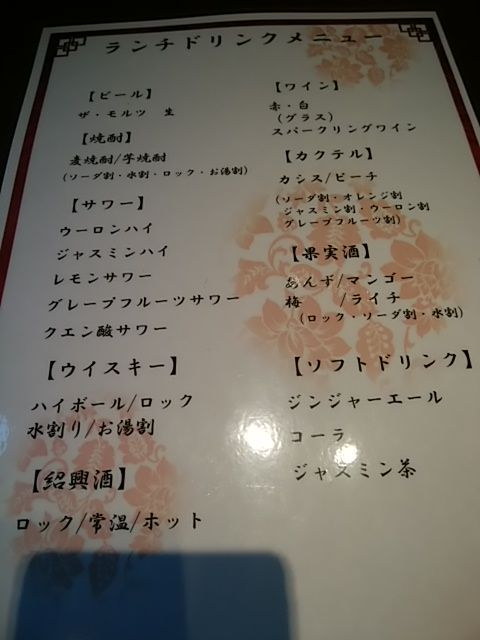 ランチドリンクメニュー
【ビール】
ザ・モルツ 生
【焼酎】
麦焼酎/芋焼酎
(ソーダ割・水割・ロック・お湯割)
【サワー】
ウーロンハイ
ジャスミンハイ
レモンサワー
グレープフルーツサワー
クエン酸サワー
【ウイスキー】
ハイボール/ロック
水割り/お湯割
【紹興酒】
ロック/常温/ホット
【ワイン】
赤・白
(グラス)
スパークリングワイン
【カクテル】
カシス/ピーチ
(ソーダ割・オレンジ割
ジャスミン割・ウーロン割
グレープフルーツ割)
【果実酒】
あんず/マンゴー
梅 /ライチ
(ロック・ソーダ割・水割)
【ソフトドリンク】
ジンジャーエール
コーラ
ジャスミン茶